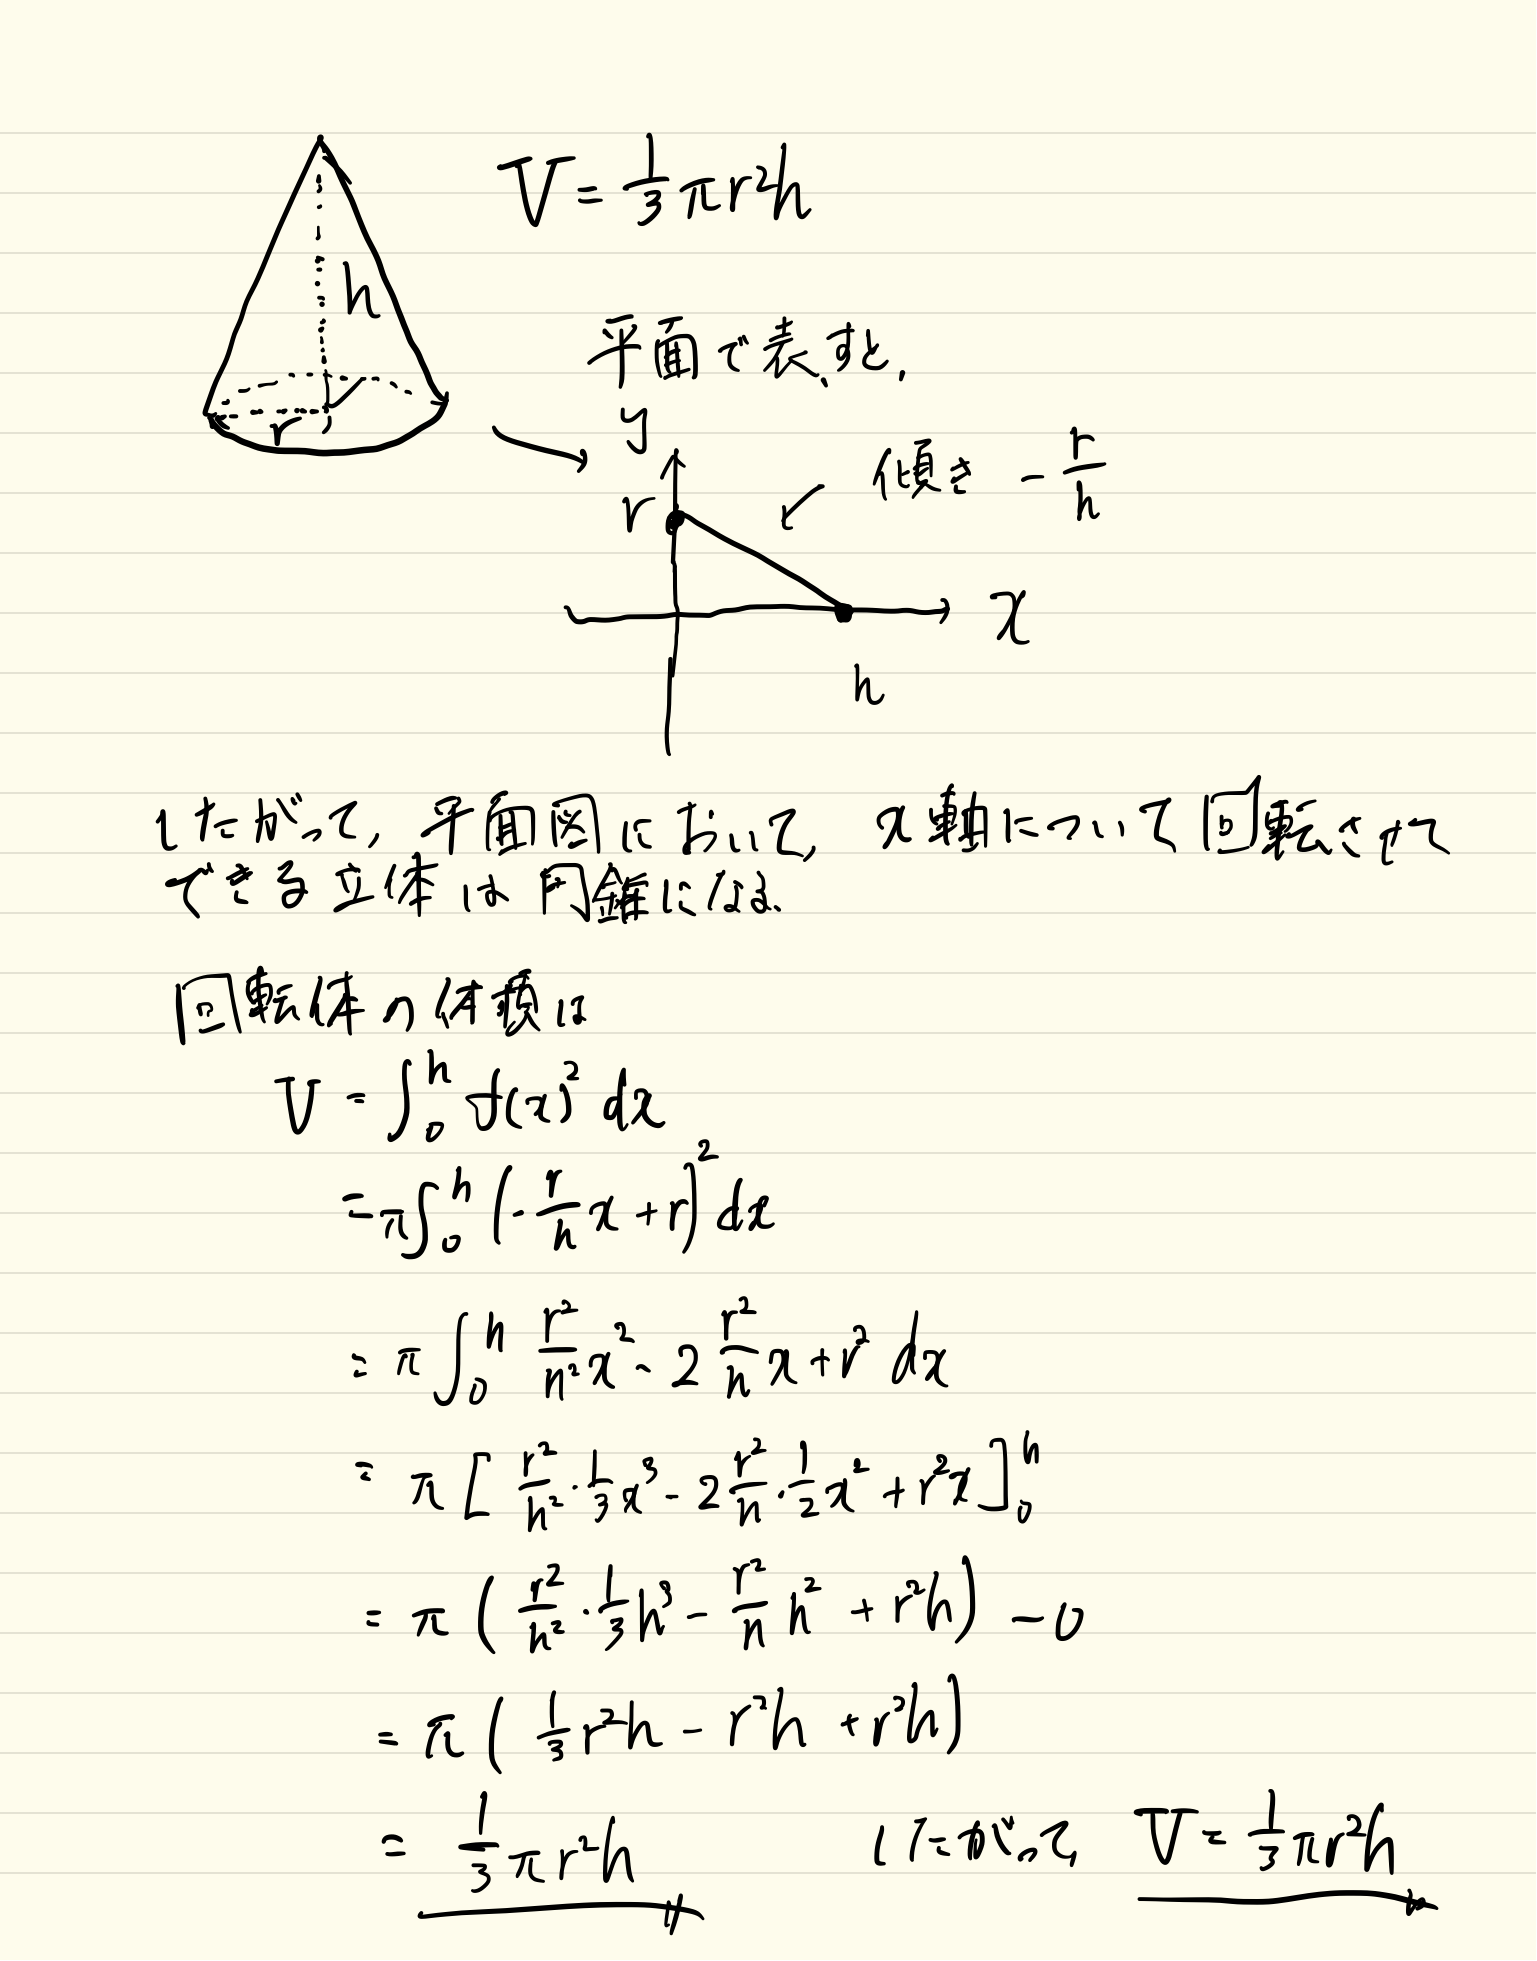 V = 1/3 πr²h
h
r
平面で表すと,
y
傾き -r/h
r
x
h
したがって, 平面図において, x軸について回転させて
できる立体は円錐になる.
回転体の体積は
V = ∫₀ʰ f(x)² dx
= π∫₀ʰ (-r/h x + r)² dx
= π∫₀ʰ r²/h² x² - 2 r²/h x + r² dx
= π [ r²/h² · 1/3 x³ - 2 r²/h · 1/2 x² + r²x ]₀ʰ
= π ( r²/h² · 1/3 h³ - r²/h h² + r²h ) - 0
= π ( 1/3 r²h - r²h + r²h )
= 1/3 πr²h したがって, V = 1/3 πr²h